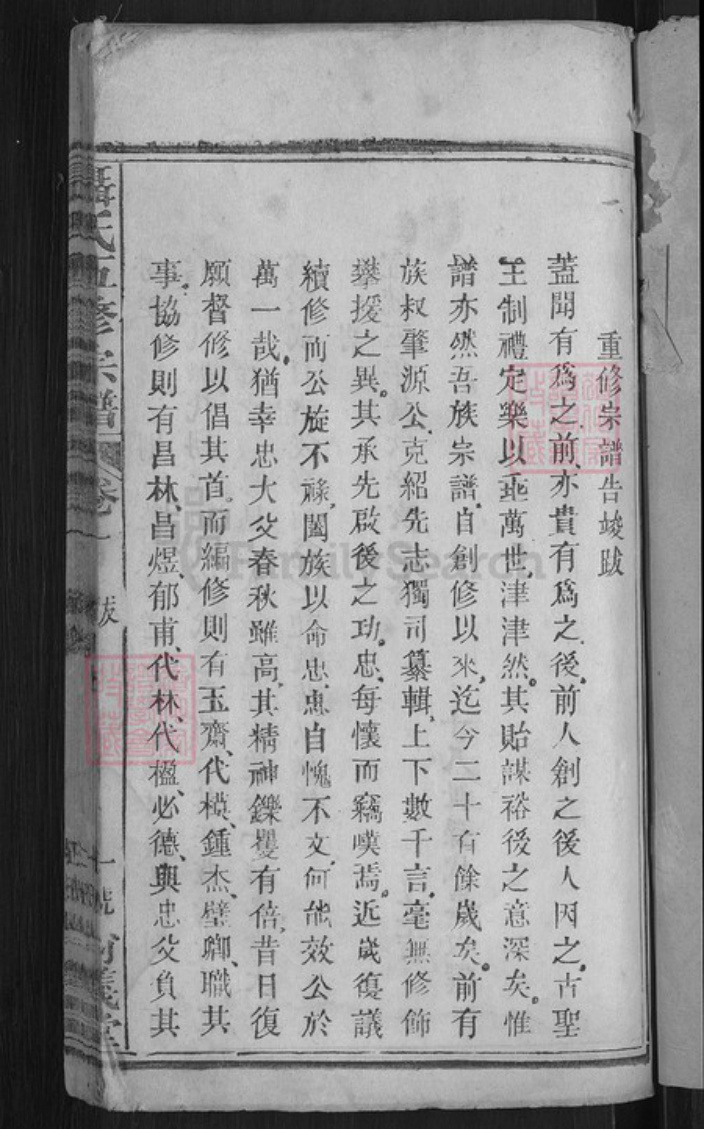 重修宗譜告竣跋
蓋聞有爲之前、亦貴有爲之後、前人創之後人因之、古聖
王制禮定樂以垂萬世、津津然、其貽謀裕後之意深矣。惟
譜亦然吾族宗譜、自創修以來、迄今二十有餘歲矣。前有
族叔肇源公、克紹先志獨司纂輯、上下數千言、毫無修飾
攀援之異。其承先啟後之功、忠每懷而竊嘆焉。近歲復議
續修而公旋不祿、闔族以命忠、忠自愧不文、何能效公於
萬一哉、猶幸忠大父春秋雖高、其精神鑠矍有倍、昔日復
願督修以倡其首。而編修則有玉齋、代模、鍾杰、璧卿、職其
事、協修則有昌林、昌煜郁甫、代林、代楹、必德、與忠父負其
聶氏五修宗譜
卷一
跋
FamilySearch